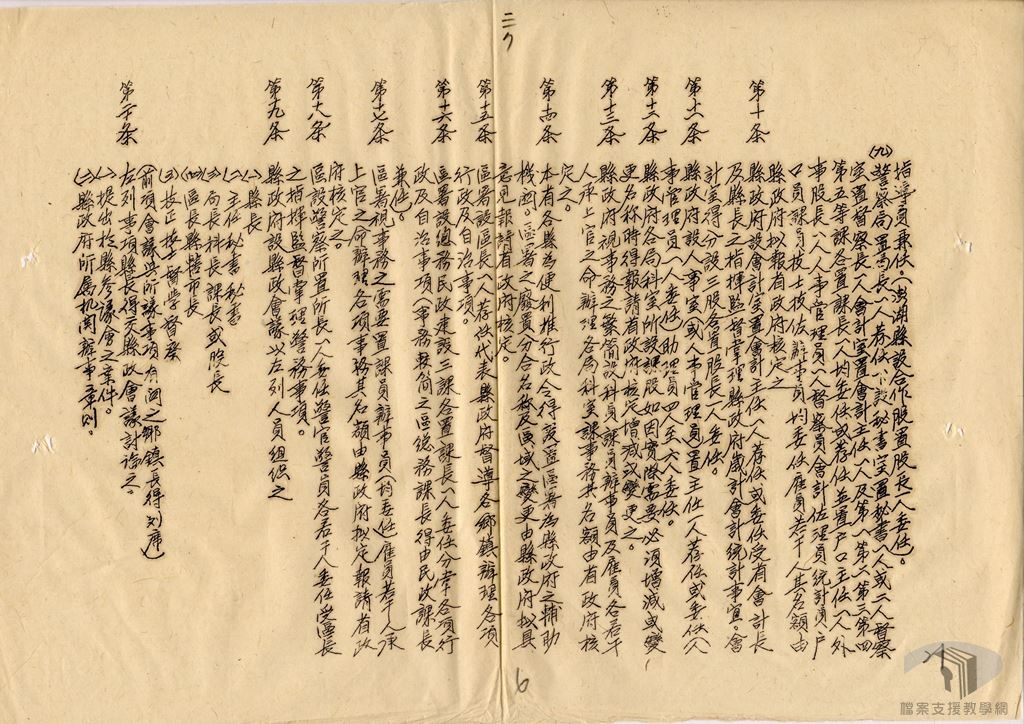 三
指導員兼任。(澎湖縣設合作股置股長一人委任)。
(九)警察局置局長一人荐任、下設秘書室置秘書一人或二人督察
室置督察長一人會計室置會計主任一人及第一第二第三第四
第五等課各置課長一人均委任或荐任並置戶口主任一人外
事股長一人人事管理員一人督察員會計佐理員統計員戶
口員課員技士技佐辦事員均委任雇員若干人其名額由
縣政府擬報省政府核定之
第十条
縣政府設會計室置會計主任一人荐任或委任受省會計長
及縣長之指揮監督掌理縣政府歲計會計統計事宜。會
計室得分設三股各置股長一人委任。
第十一条
縣政府設人事室(或人事管理員)置主任一人荐任或委任(人
事管理員一人委任)助理員四人至六人委任。
第十二条
縣政府各局科室所設課股如因實際需要必須增減或變
更名称時得報請省政府核定增減或變更之。
第十三条
縣政府視事務之繁簡設科員課員辦事員及雇員各若干
人承上官之命辦理各局科室課事務其名額由省政府核
定之。
第十四条
本省各縣為便利推行政令得設置區署為縣政府之輔助
機関。區署之廢置分合名称及區域之變更由縣政府拟具
意見報請省政府核定。
第十五条
區署設區長一人荐任代表縣政府督導各鄉鎮辦理各項
行政及自治事項。
第十六条
區署設總務民政建設三課各置課長一人委任分掌各項行
政及自治事項(事務較簡之區總務課長得由民政課長
兼任。
第十七条
區署視事務之需要置課員辦事員(均委任)雇員若干人承
上官之命辦理各項事務其名額由縣政府拟定報請省政
府核定之。
第十八条
區設警察所置所長一人委任警官警員各若干人委任受區長
之指揮監督掌理警務事項。
第十九条
縣政府設縣政會議以左列人員組织之
(一)縣長
(二)主任秘書秘書
(三)局長科長課長或股長
(四)區長縣轄市長
(五)技正技士督學督察
(前項會議與所議事項有関之鄉鎮長得列席)
第二十条
左列事項縣長得交縣政會議討論之。
(一)提出於縣參議會之案件。
(二)縣政府所属机関辦事章則。
6
檔案支援教學網